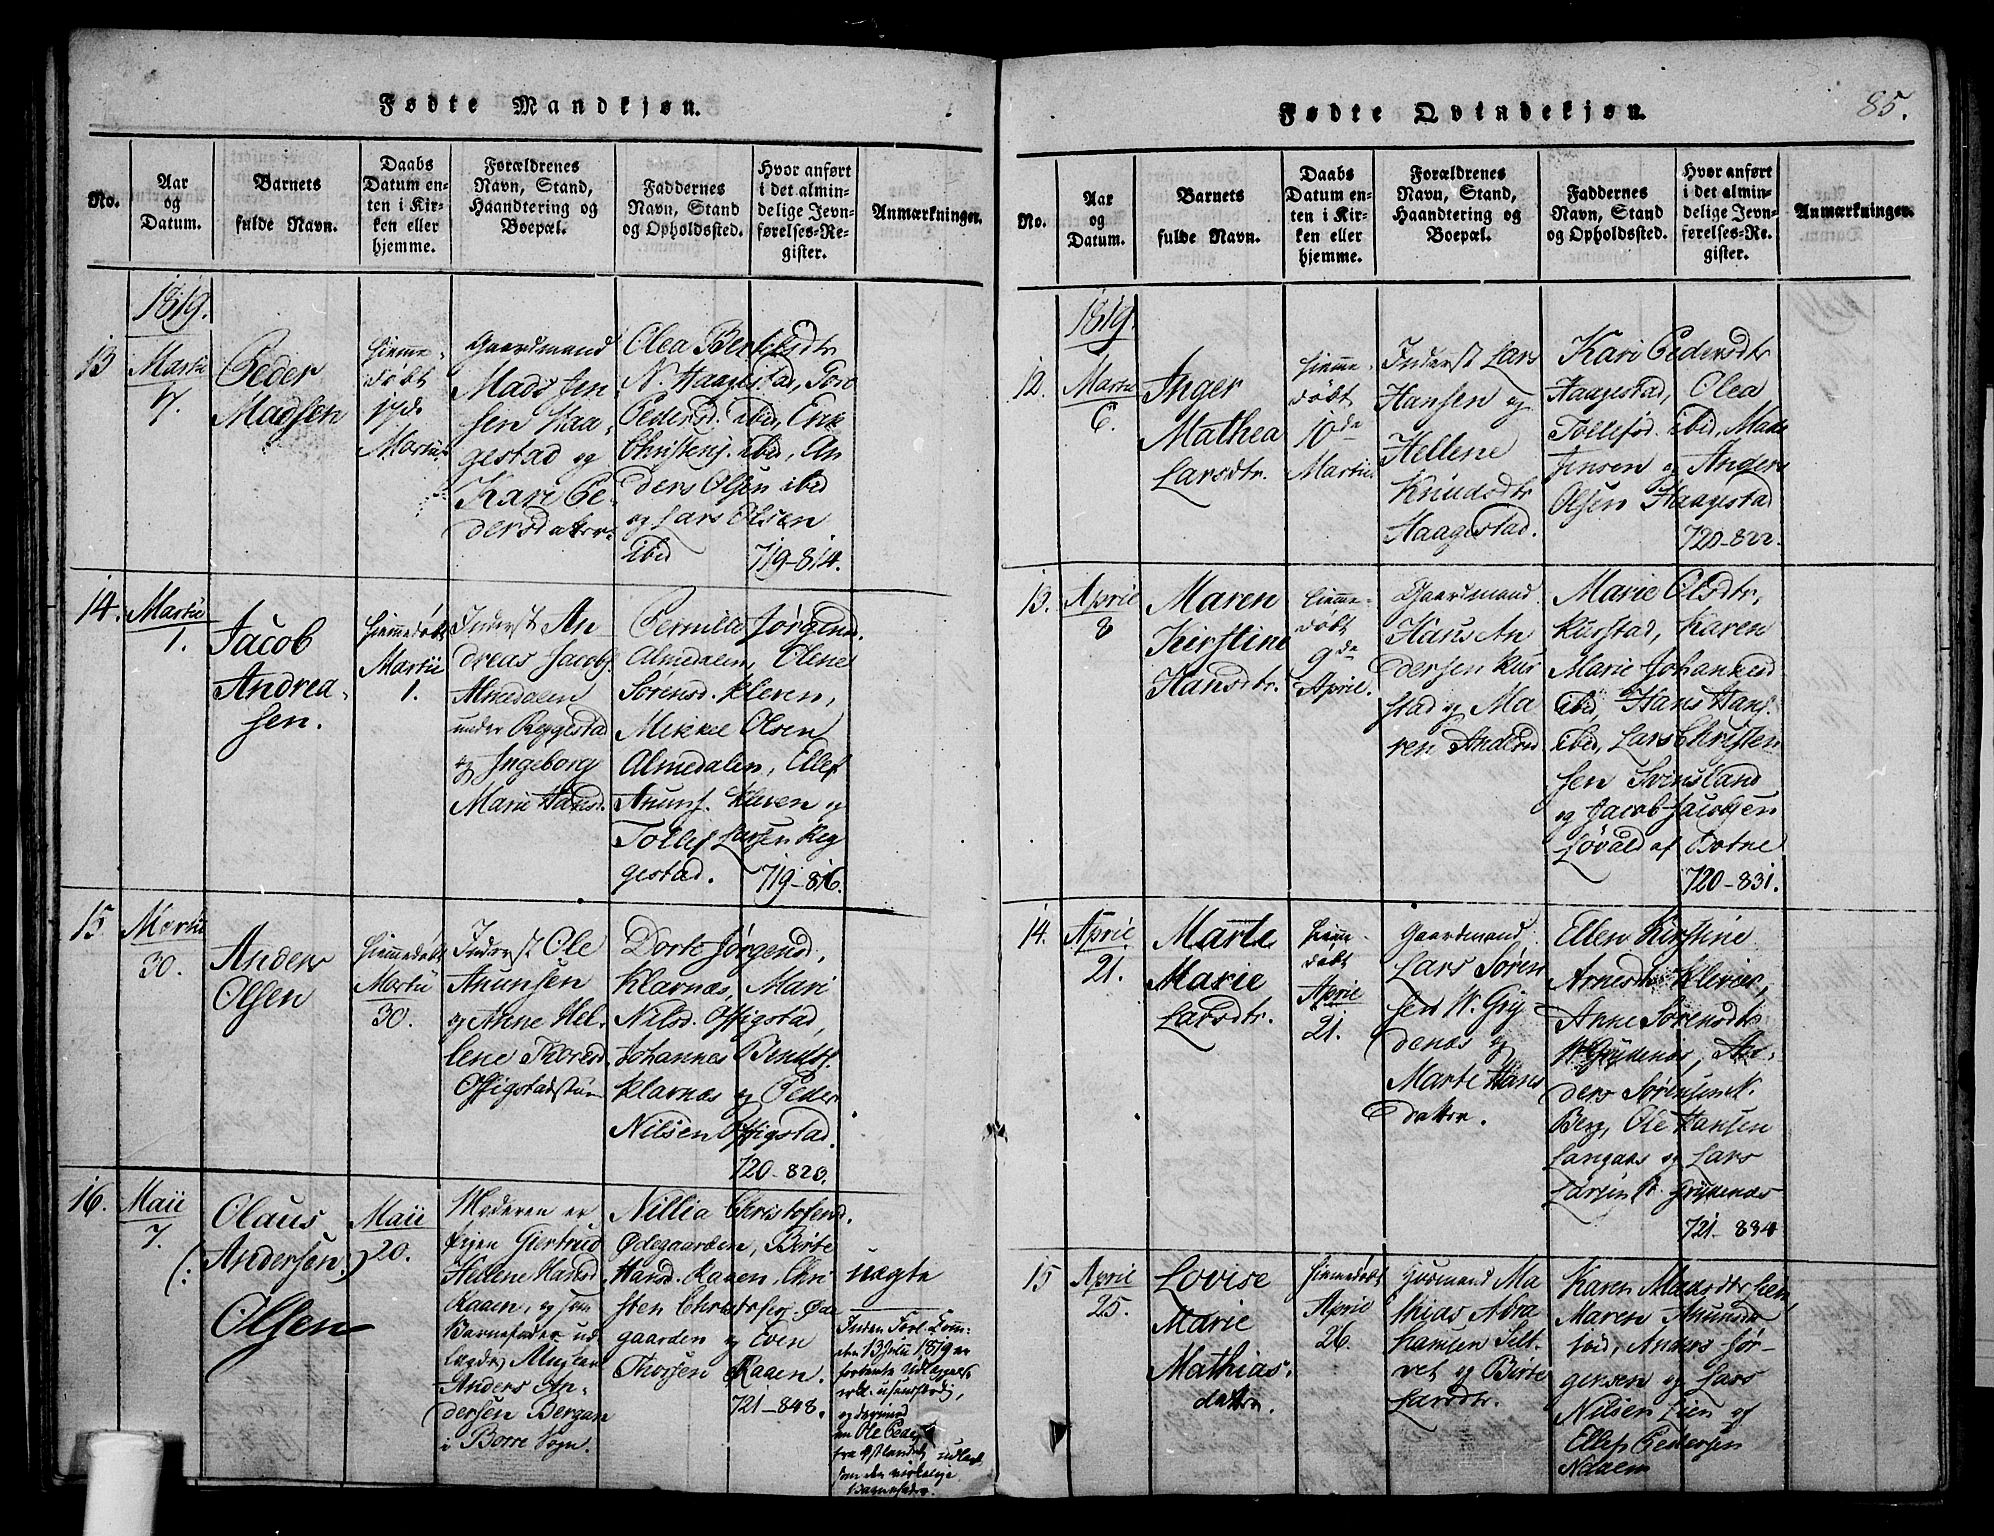 Fødte Mandkjøn.
No.
Aar
og
Datum.
Barnets
fulde Navn.
Daabs
Datum en-
ten i Kir-
ken eller
hjemme.
Forældrenes
Navn, Stand,
Haandtering og
Boepæl.
Faddernes
Navn, Stand
og Opholdssted.
Hvor anført
i det almin-
delige Jevn-
førelses-Re-
gister.
Anmærkninger.
1819.
13
Martii
7.
Peder
Madsen
Hieme-
døbt
17de
Martii
Gaardmand
Mads Jen
sen Haa-
gestad og
Kari Pe-
dersdatter
Olea Bentsdtr
N. Haagestad, Gro
Pedersd. ibid, Erik
Christens. ibid, An
ders Olsen ibid
og Lars Olsen
ibid
719-814.
14.
Martii
1.
Jacob
Andrea-
sen.
Hiemedøbt
Martii
1.
Inderst An-
dreas Jacobs.
Almedalen
under Reggestad
og Ingeborg
Marie Hansd.
Pernille Jørgensd.
Almedalen, Oline
Sørensd. Kleven,
Mikkel Olsen
Almedalen, Ellef
Anuns. Kleven og
Tollef Larsen Reg
gestad.
719-816.
15
Martii
30.
Anders
Olsen
Hiemedøbt
Martii
30.
Inderst Ole
Anunsen
og Anne Hel-
lene Thoresd.
Offigstadstue
Dorte Jørgensd,
Klavnæs, Mari
Nilsd. Offigstad,
Johannes Bendts.
Klavnæs og Peder
Nilsen Offigstad.
720-823.
16.
Maii
7.
Olaus
(: Andersen :)
Olsen
Maii
20.
Moderen er
Pigen Giertrud
Hellene Hansd.
Raaen, og som
Barnefader ud
lagdes
Anders An-
dersen Bergan
i Borre Sogn.
Nillia Christofersd.
Ødegaarden, Birte
Hansd. Raaen, Chri
sten Christofers. Øde
gaarden og Even
Thorsen Raaen.
721-848.
uægte
Inden Forl. Comm.
den 13 Julii 1819 er
forbente Udlæggelse
erkl. usandfærdig,
og derimod
en Ole Peders
fra Østlandet udlagt
som den virkelige
Barnefader.
85.
Fødte Qvindekjøn.
No.
Aar
og
Datum.
Barnets
fulde Navn.
Daabs
Datum en-
ten i Kir-
ken eller
hjemme.
Forældrenes
Navn, Stand,
Haandtering og
Boepæl.
Faddernes
Navn, Stand
og Opholdssted.
Hvor anført
i det almin-
delige Jevn-
førelses-Re-
gister.
Anmærkninger.
1819.
12.
Martii
6.
Inger
Mathea
Larsdtr.
Hieme-
døbt
10de
Martii
Inderst Lars
Hansen og
Hellene
Knudsdtr
Haagestad.
Kari Pedersdtr
Haagestad, Olea
Tollefsd. ibid, Mads
Jensen og Anders
Olsen Haagestad
720-822.
13.
Aprile
8
Maren
Kirstine
Hansdtr.
Hieme-
døbt
9de
April.
Gaardmand
Hans An
dersen Kus
stad og Ma
ren Andersd
Marie Olsdtr,
Kusstad, Karen
Marie Johannesd
ibid, Hans Hans.
ibid, Lars Christen
sen Svinsland
og Jacob Jacobsen
Løvald af Botne
720-831.
14.
Aprile
21.
Marte
Marie
Larsdtr.
Hieme-
døbt
Aprile
21.
Gaardmand
Lars Søren
sen W. Gry
denæs og
Marte Hans
datter.
Ellen Kirstine
Arnesdtr
Anne Sørensdtr
W. Grydenæs, An-
ders Sørensen N.
Berg, Ole Hansen
Langaas og Lars
Larsen Grydenæs
721-834
15
April
25.
Lovise
Marie
Mathias-
datter.
Hiemedøbt
Aprile
26.
Huusmand Ma
thias Abra
hamsen Selt-
vet og Birte
Larsdtr.
Karen Madsdtr Lien,
Maren Anunsdtr
ibid, Anders Jør-
gensen og Lars
Nilsen Lien og
Ellef Pedersen